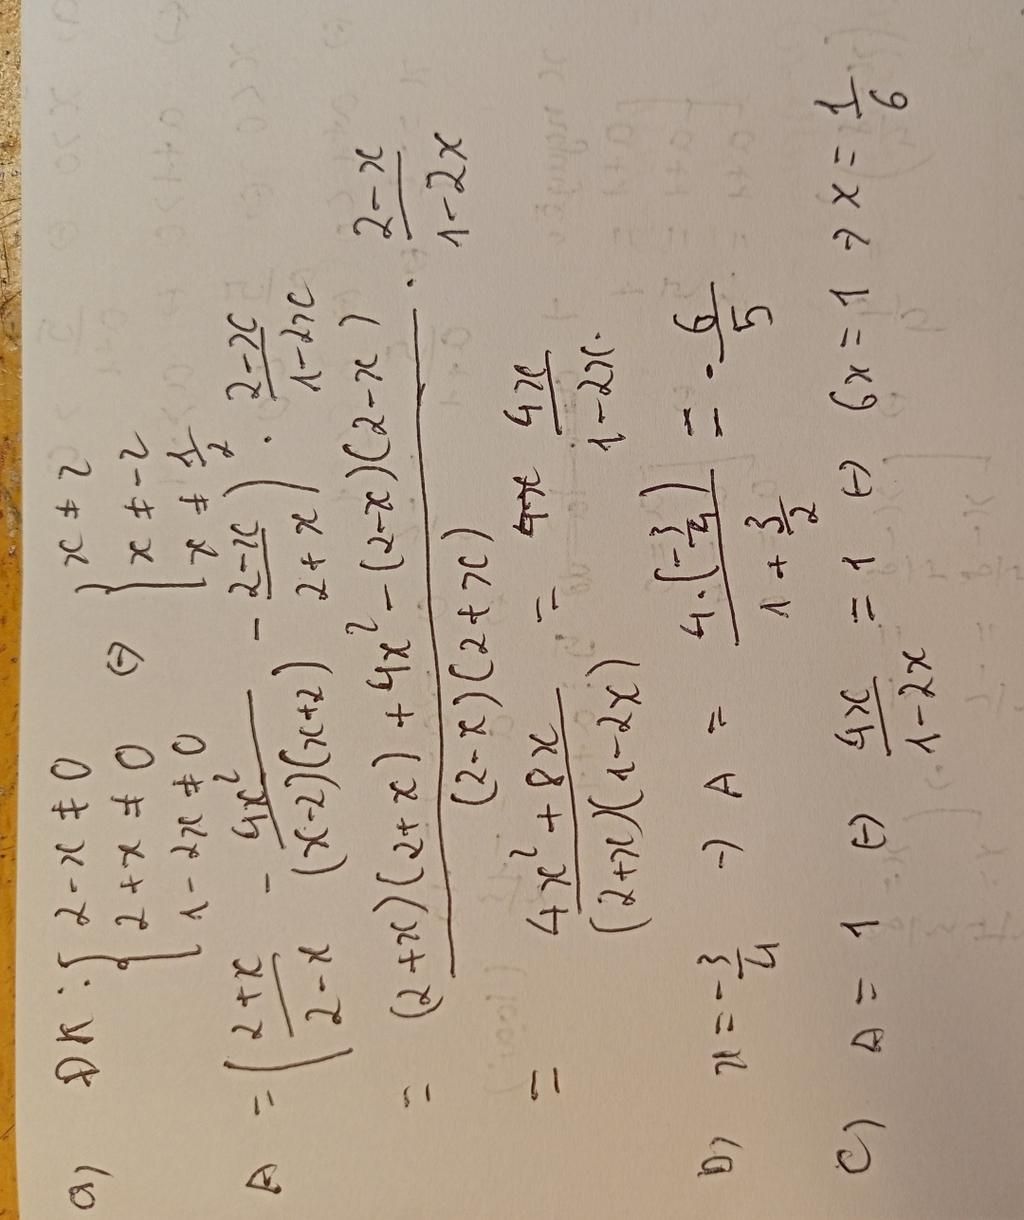 a) ĐK: { 2-x ≠ 0 ; 2+x ≠ 0 ; 1-2x ≠ 0 (=) { x ≠ 2 ; x ≠ -2 ; x ≠ 1/2
A = ( (2+x)/(2-x) - 4x²/((x-2)(x+2)) - (2-x)/(2+x) ) . (2-x)/(1-2x)
= ((2+x)(2+x) + 4x² - (2-x)(2-x))/((2-x)(2+x)) . (2-x)/(1-2x)
= (4x² + 8x)/((2+x)(1-2x)) = 4x/(1-2x).
b) x = -3/4 -) A = (4.(-3/4))/(1 + 3/2) = -6/5
c) A = 1 (=) 4x/(1-2x) = 1 (=) 6x = 1 -) x = 1/6